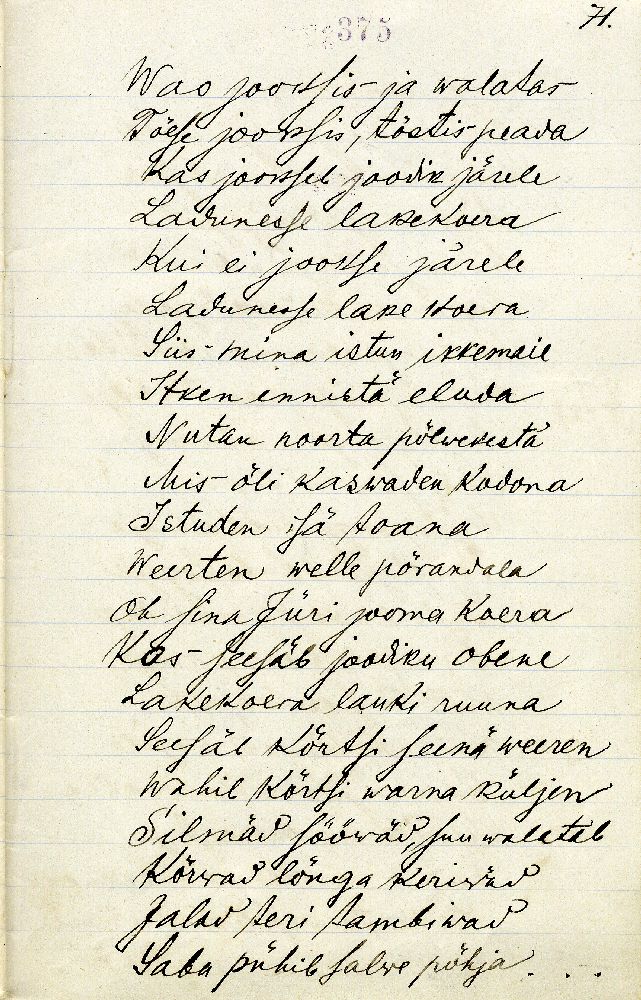 71.
375
Wao jooksis ja walatas
Tõesse jooksis, tõstis peada
Kas jookseb joodik järele
Ladunesse lakekoera
Kui ei jookse järele
Ladunesse lake koera
Siis mina istun ikkemaie
Itken ennistä eluda
Nutan noorta põlwekestä
Mis õli kaswaden kodona
Istuden isä toana
Weerten welle põrandala
Oh sina Jüri jooma koera
Kas seesäb joodiku obene
Lakekoera lauki ruuna
Seesäb kõrtsi seenä weeren
Wahib kõrtsi warna küljen
Silmäd sööwäd, suu walatab
Kõrwad lõnga keriwäd
Jalad teri tambiwad
Saba pühib salwe põhja . . .